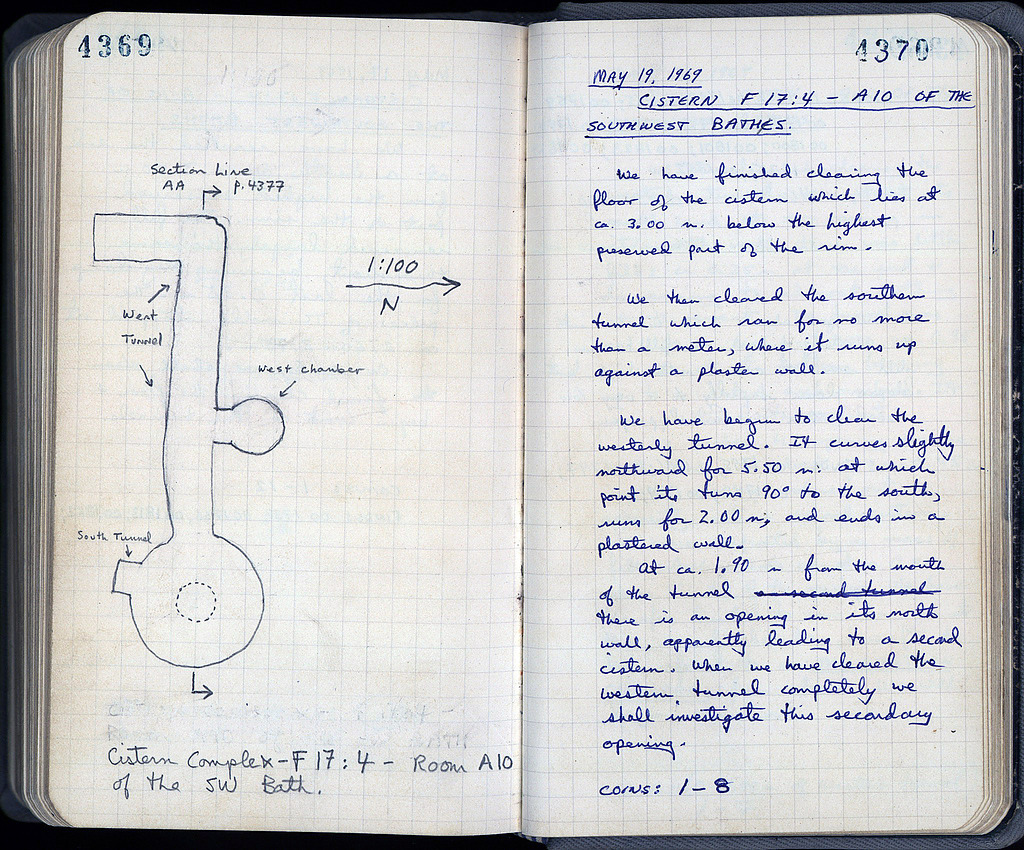 4369
Section Line
AA P. 4377
1:100
N
West
Tunnel
West chamber
South Tunnel
Cistern Complex - F 17:4 - Room A10
of the SW Bath.
4370
MAY 19, 1969
CISTERN F 17:4 - A10 OF THE
SOUTHWEST BATHES.
We have finished clearing the
floor of the cistern which lies at
ca. 3.00 m. below the highest
preserved part of the rim.
We then cleared the southern
tunnel which ran for no more
than a meter, where it runs up
against a plaster wall.
We have begun to clear the
westerly tunnel. It curves slightly
northward for 5.50 m: at which
point its turns 90° to the south,
runs for 2.00 m; and ends in a
plastered wall.
At ca. 1.90 m from the mouth
of the tunnel a second tunnel
there is an opening in its north
wall, apparently leading to a second
cistern. When we have cleared the
western tunnel completely we
shall investigate this secondary
opening.
COINS: 1-8